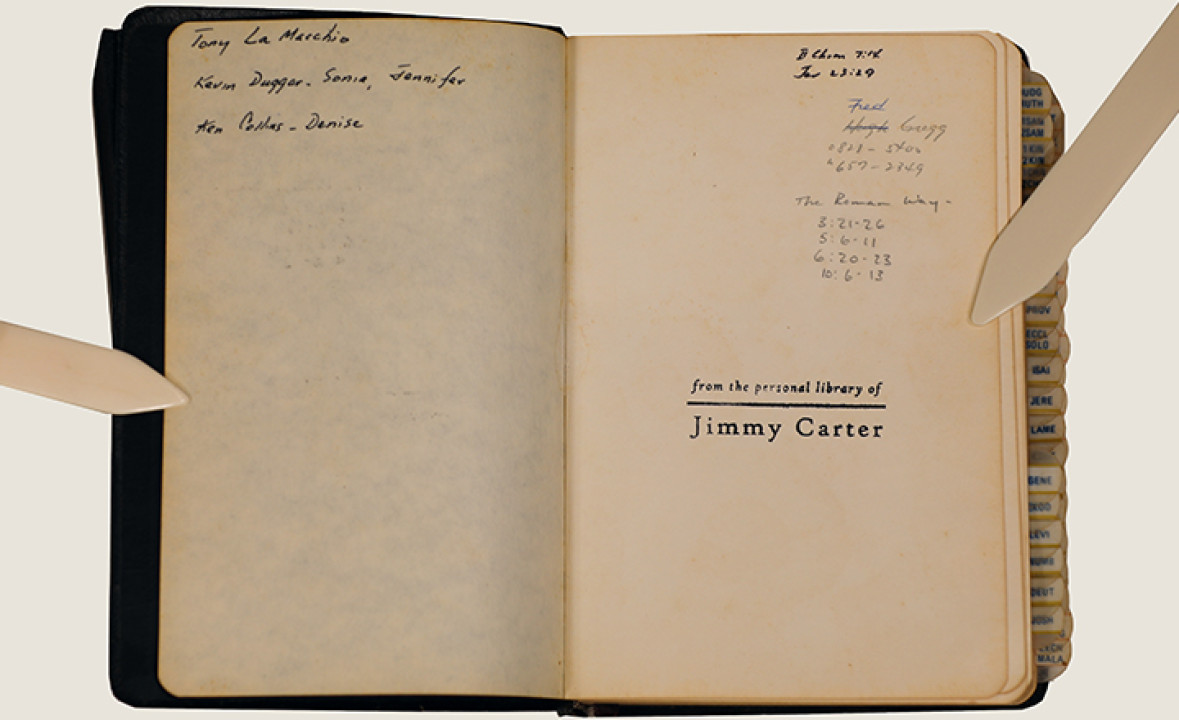 Tony La Macchio
Kevin Dugger - Sonia, Jennifer
Ken Collas - Denise
II Chron 7:14
Jer 23:29
Fred
Hugh Gregg
657-2349
The Roman Way -
3:21-26
5:6-11
6:20-23
10:6-13
from the personal library of
Jimmy Carter
JUDG
RUTH
1SAM
2SAM
1KIN
2KIN
PROV
ECCL
SOLO
ISAI
JERE
LAME
GENE
EXOD
LEVI
NUMB
DEUT
JOSH
ZECH
MALA